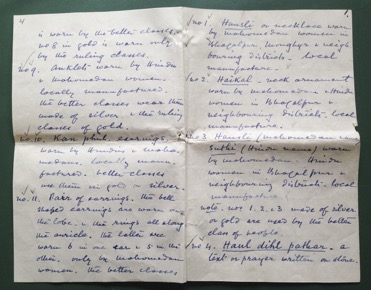 4
is worn by the better classes.
no. 8 in gold is worn only
by the ruling classes.
no. 9. Anklets worn by Hindu
& mahomedan women.
locally manufactured.
the better classes wear them
made of silver & the ruling
classes of gold.
no. 10. Karn phul. earrings.
worn by Hindus & maho-
madans. locally manu-
factured. better classes
use them in gold or silver.
no. 11. Pair of earrings. the bell
shaped earrings are worn on
the lobe. & the rings all along
the auricle. the latter are
worn 6 in one ear & 5 in the
other. only by mahomedan
women. the better classes
1.
no 1. Hansli or necklace worn
by mahomedan women in
Bhagalpur, Monghyr & neigh-
bouring districts. local
manufacture.
no 2. Haikal. neck ornament
worn by mahomedan & Hindu
women in Bhagalpur &
neighbouring districts. local
manufacture.
no 3 (mahomedan name)
Suthi (Hindu name) worn
by mahomedan & Hindu
women in Bhagalpur &
neighbouring districts. local
manufacture.
note. nos 1. 2. & 3 made of silver
or gold are used by the better
class of people.
no 4. Haul dihl pathar. a
text or prayer written on stone.